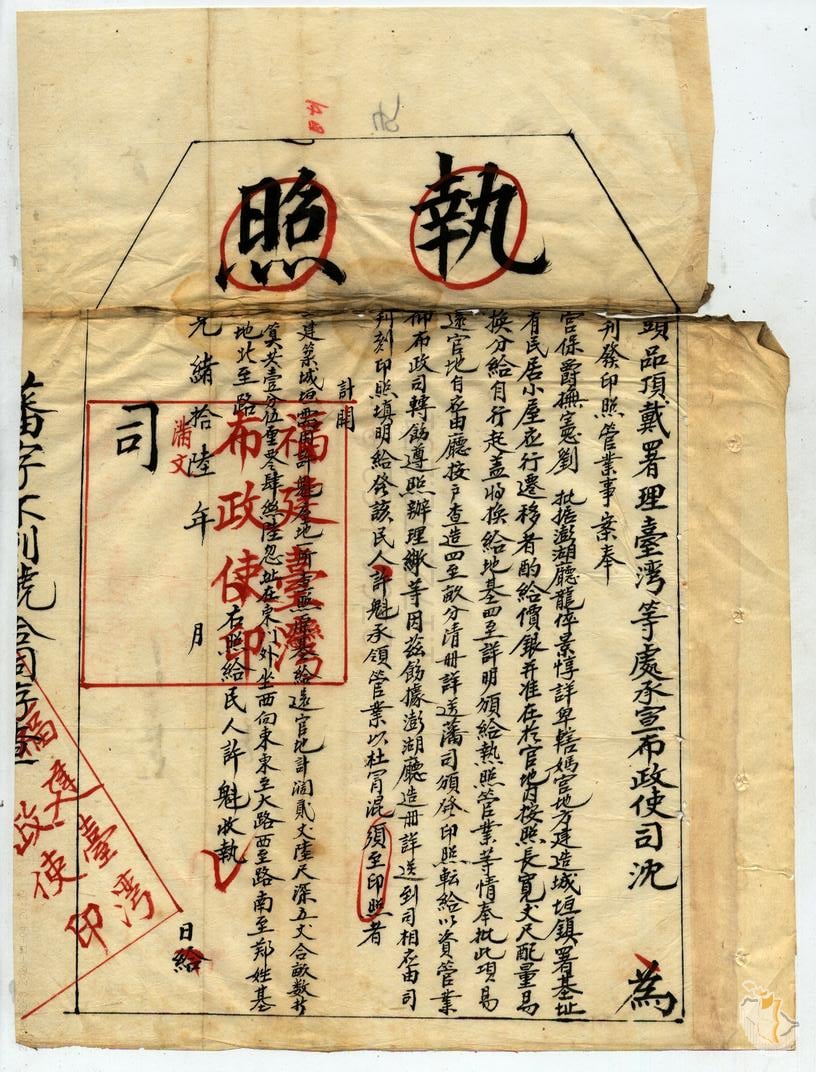 執照
頭品頂戴署理臺灣等處承宣布政使司沈 為
刊發印照管業事案奉
宮保爵撫憲劉 批據澎湖廳龍倅景惇詳卑轄媽宮地方建造城垣鎮署基址
有民居小屋應行遷移者酌給價銀并准在於官地內按照長寬丈尺配量易
換分給自行起蓋將換給地基四至詳明頒給執照管業等情奉批此項易
還官地自應由廳按戶查造四至畝分清冊詳送藩司頒發印照転給以資管業
仰布政司轉飭遵照辦理繳等因茲飭據澎湖廳造冊詳送到司相應由司
刊刻印照填明給發該民人許魁承領管業以杜冒混須至印照者
計開
一建築城垣需用許魁座地一所查照原基給還官地計濶貳丈陸尺深五丈合畝數於
算共壹分伍重零肆無陸忽址在東門外坐西向東東至大路西至路南至鄭姓基
地北至路
右照給民人許魁收執
光緒拾陸年 月 日給
司
福建臺灣
布政使印
滿文
藩字 號合同存查
福建臺灣
政使印